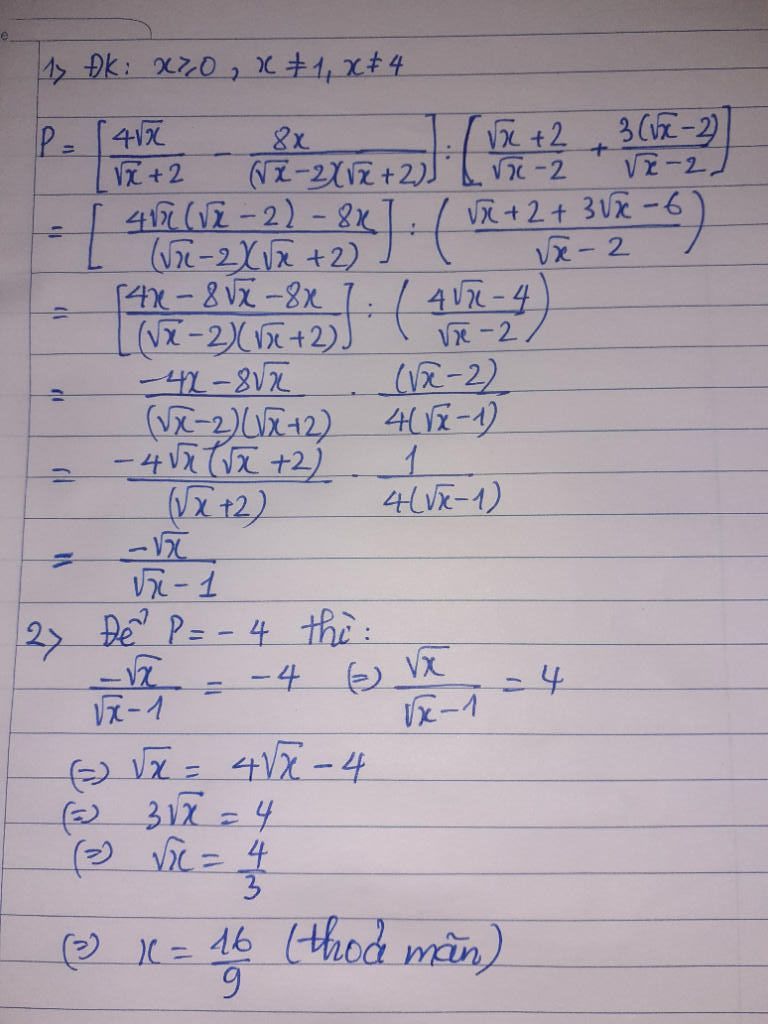 1> ĐK: x ≥ 0, x ≠ 1, x ≠ 4
P = [4√x/(√x + 2) - 8x/((√x - 2)(√x + 2))] : [(√x + 2)/(√x - 2) + 3(√x - 2)/(√x - 2)]
= [(4√x(√x - 2) - 8x)/((√x - 2)(√x + 2))] : ((√x + 2 + 3√x - 6)/(√x - 2))
= [(4x - 8√x - 8x)/((√x - 2)(√x + 2))] : ((4√x - 4)/(√x - 2))
= (-4x - 8√x)/((√x - 2)(√x + 2)) . (√x - 2)/(4(√x - 1))
= -4√x(√x + 2)/(√x + 2) . 1/(4(√x - 1))
= -√x/(√x - 1)
2> Để P = - 4 thì:
-√x/(√x - 1) = - 4 (=) √x/(√x - 1) = 4
(=) √x = 4√x - 4
(=) 3√x = 4
(=) √x = 4/3
(=) x = 16/9 (thoả mãn)